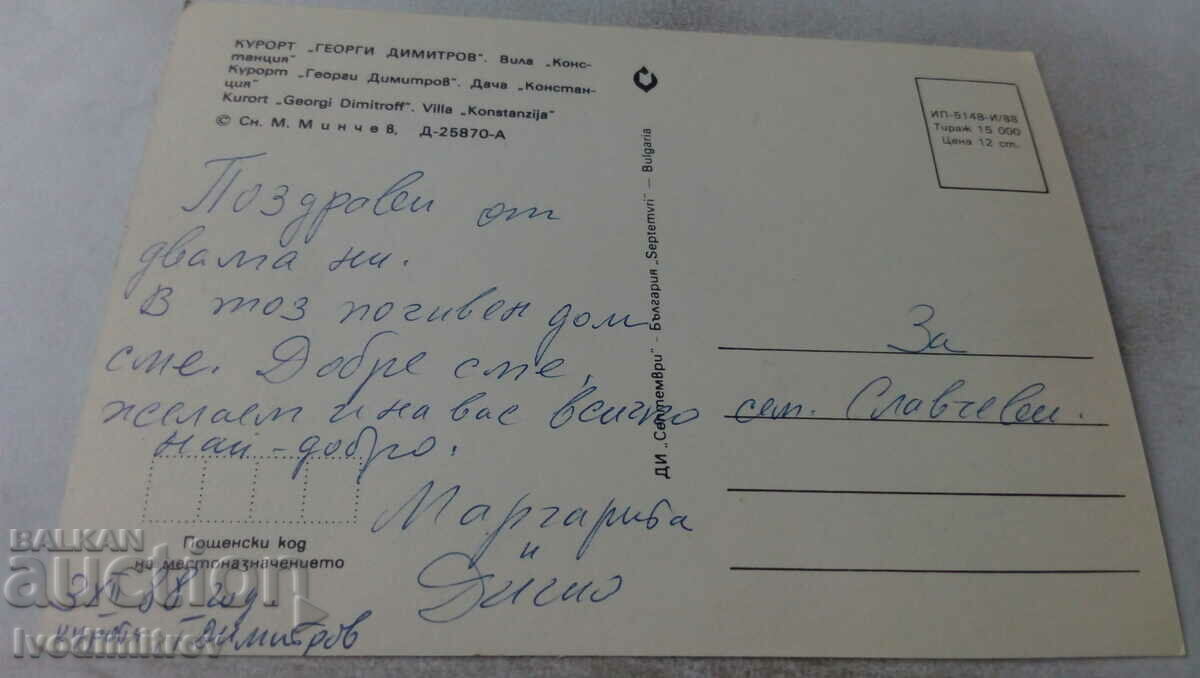 КУРОРТ „ГЕОРГИ ДИМИТРОВ". Вила „Конс-
танция"
Курорт „Георги Димитров". Дача „Констан-
ция"
Kurort „Georgi Dimitroff". Villa „Konstanzija"
© Сн. М. Минчев, Д-25870-А
Поздрави от
двама ни.
В тоз почивен дом
сме. Добре сме,
желаем и на вас всичко
най-добро.
Маргарита
и
Пощенски код
на местоназначението
3 XII 88 год.
Димитров
ДИ „Септември" - България „Septemvri" — Bulgaria
ИП-5148-И/88
Тираж 15 000
Цена 12 ст.
За
сем. Славчеви.
BALKAN
auction
Ivodimitrov